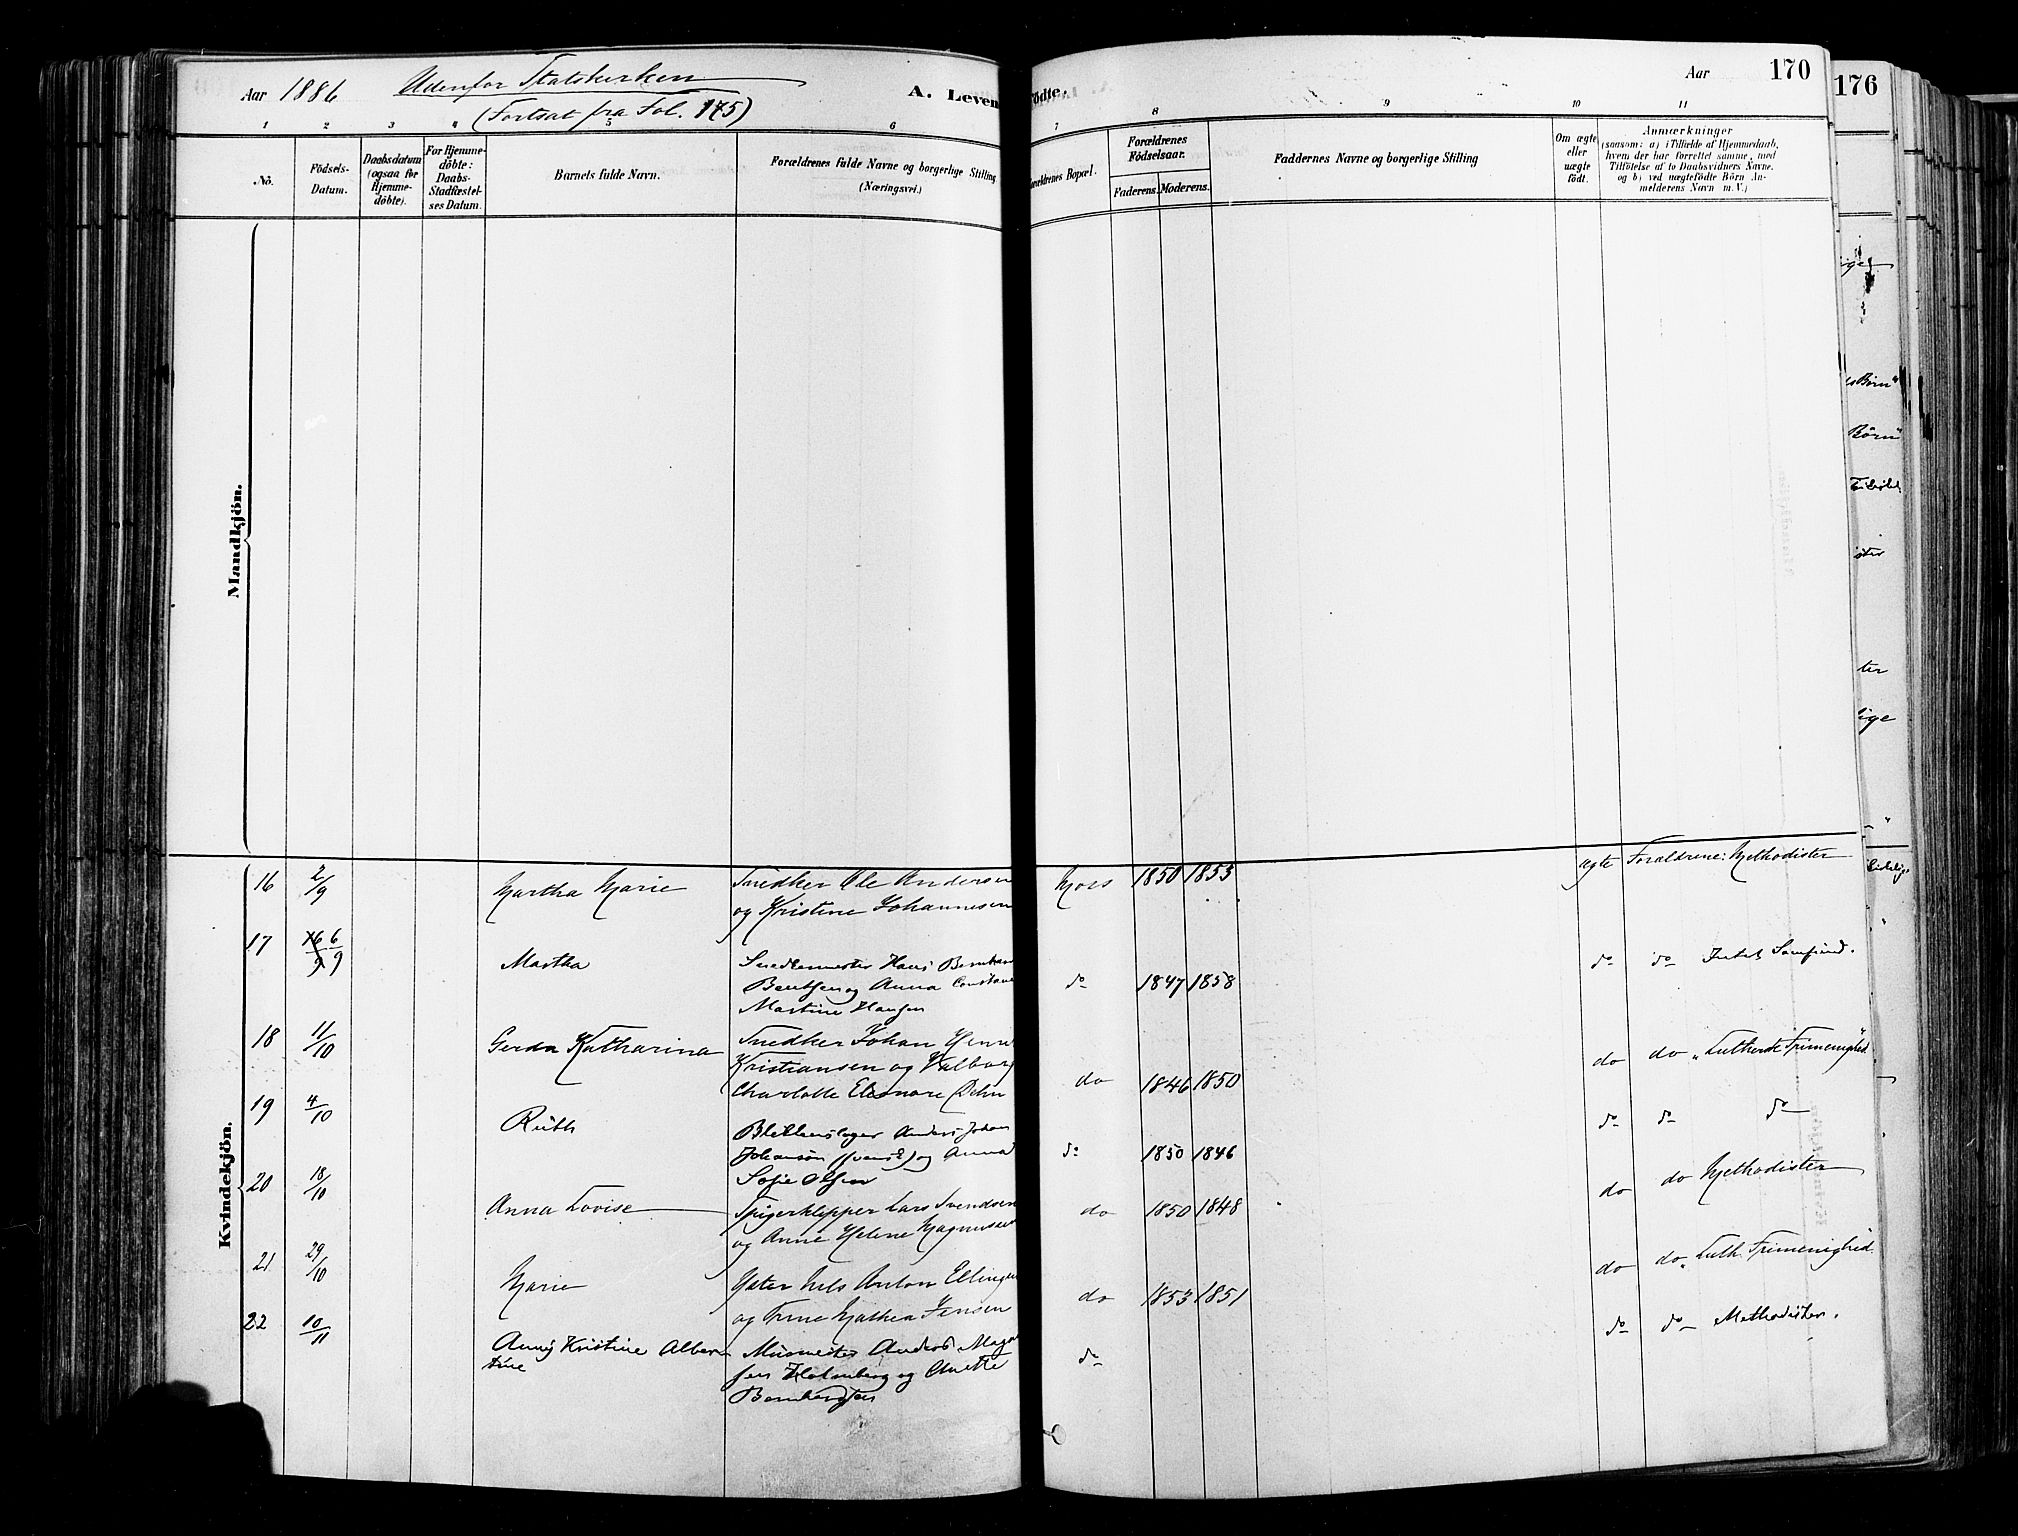 Aar 1886 Udenfor Statskirken
(Fortsat fra Fol. 175)
A. Levendе Födte.
Aar 170
176
1 2 3 4 5 6 7 8 9 10 11
No.
Födsels-Datum.
Daabsdatum (ogsaa for Hjemmedöbte).
For Hjemmedöbte: Daabs-Stadfæstelses Datum.
Barnets fulde Navn.
Forældrenes fulde Navne og borgerlige Stilling
(Næringsvei.)
Forældrenes Bopæl.
Forældrenes Födselsaar.
Faderens. Moderens.
Faddernes Navne og borgerlige Stilling
Om ægte eller uægte födt.
Anmærkninger
(saasom: a) i Tilfælde af Hjemmedaab,
hvem der har forrettet samme, med
Tilföielse af to Daabsvidners Navne.
og b) ved uægtefödte Börn An-
melderens Navn m. V.)
Mandkjön.
Kvindekjön.
16 2/9 Martha Marie Snedker Ole Andersen Moss 1850 1853 ægte Forældrene: Methodister
og Kristine Johannesen
17 16/9 6/9 Martha Snedkermester Hans Bernhard
Bentsen og Anna Constance do 1847 1858 do do Intet Samfund.
Martine Hansen
18 11/10 Gerda Katharina Snedker Johan Henrik
Kristiansen og Valborg
Charlotte Eleonore Dehn do 1846 1850 do do "Lutherske Frimenighed"
19 4/10 Ruth Blikkenslager Anders Johan
Johansön (svensk) og Anna do 1850 1846 do do do
Sofie Olsen
20 18/10 Anna Lovise Spigerklipper Lars Svendsen do 1850 1848 do do Methodister
og Anne Helene Magnussen
21 29/10 Marie Yster Nils Anton Ellingsen do 1853 1851 do do "Luth. Frimenighed
og Trine Mathea Jensen
22 10/11 Anny Kristine Alber-
tine
Murmester Anders Mag-
sen Holmberg og Anette do do do Methodister.
Bernhardsen